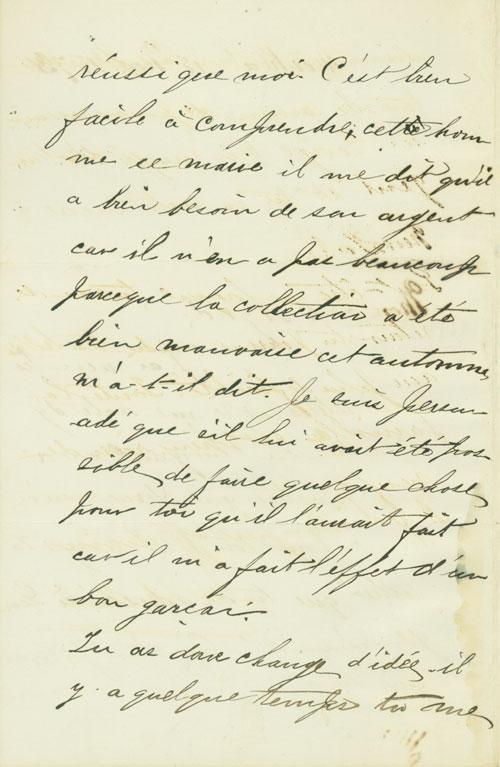 réussi que moi. C'est bien
facile à comprendre; cette hom
me se marie il me dit qu'il
a bien besoin de son argent
car il n'en a pas beaucoup
parceque la collection a été
bien mauvaise cet automne,
m'a-t-il dit. Je suis persu-
adé que s'il lui avait été pos-
sible, de faire quelque chose,
pour toi qu'il l'aurait fait
car il m'a fait l'effet d'un
bon garçon.
Tu as donc changé d'idée, il
y a quelque temps tu me